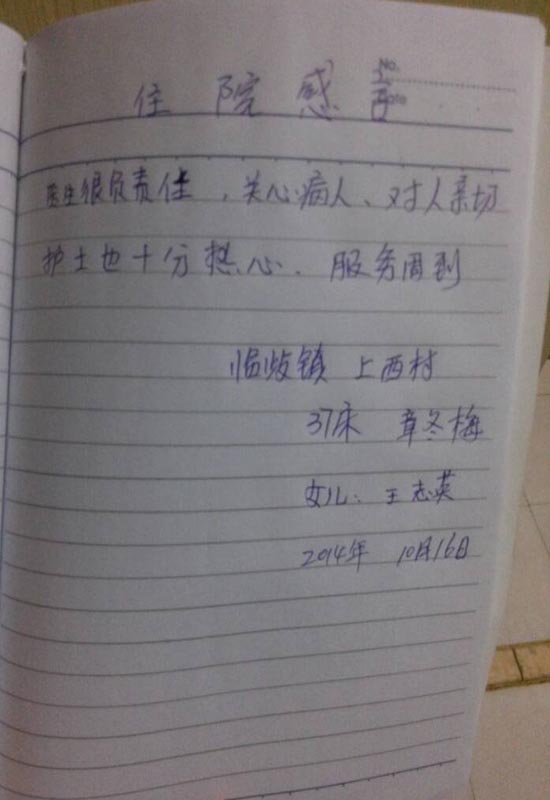 No.
Date
住院感言
医生很负责任，关心病人、对人亲切
护士也十分热心．服务周到
临歧镇 上西村
37床 章冬梅
女儿：王志英
2014年 10月16日